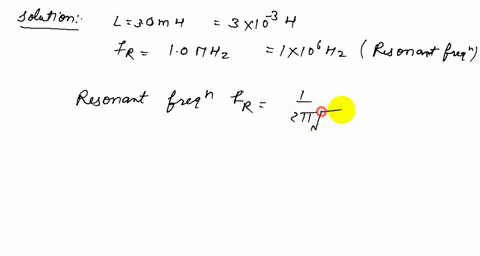 Solution:- L = 3.0 mH = 3 × 10⁻³ H
f_R = 1.0 MHz = 1 × 10⁶ Hz ( Resonant freqⁿ )
Resonant freqⁿ f_R = 1 / 2π√